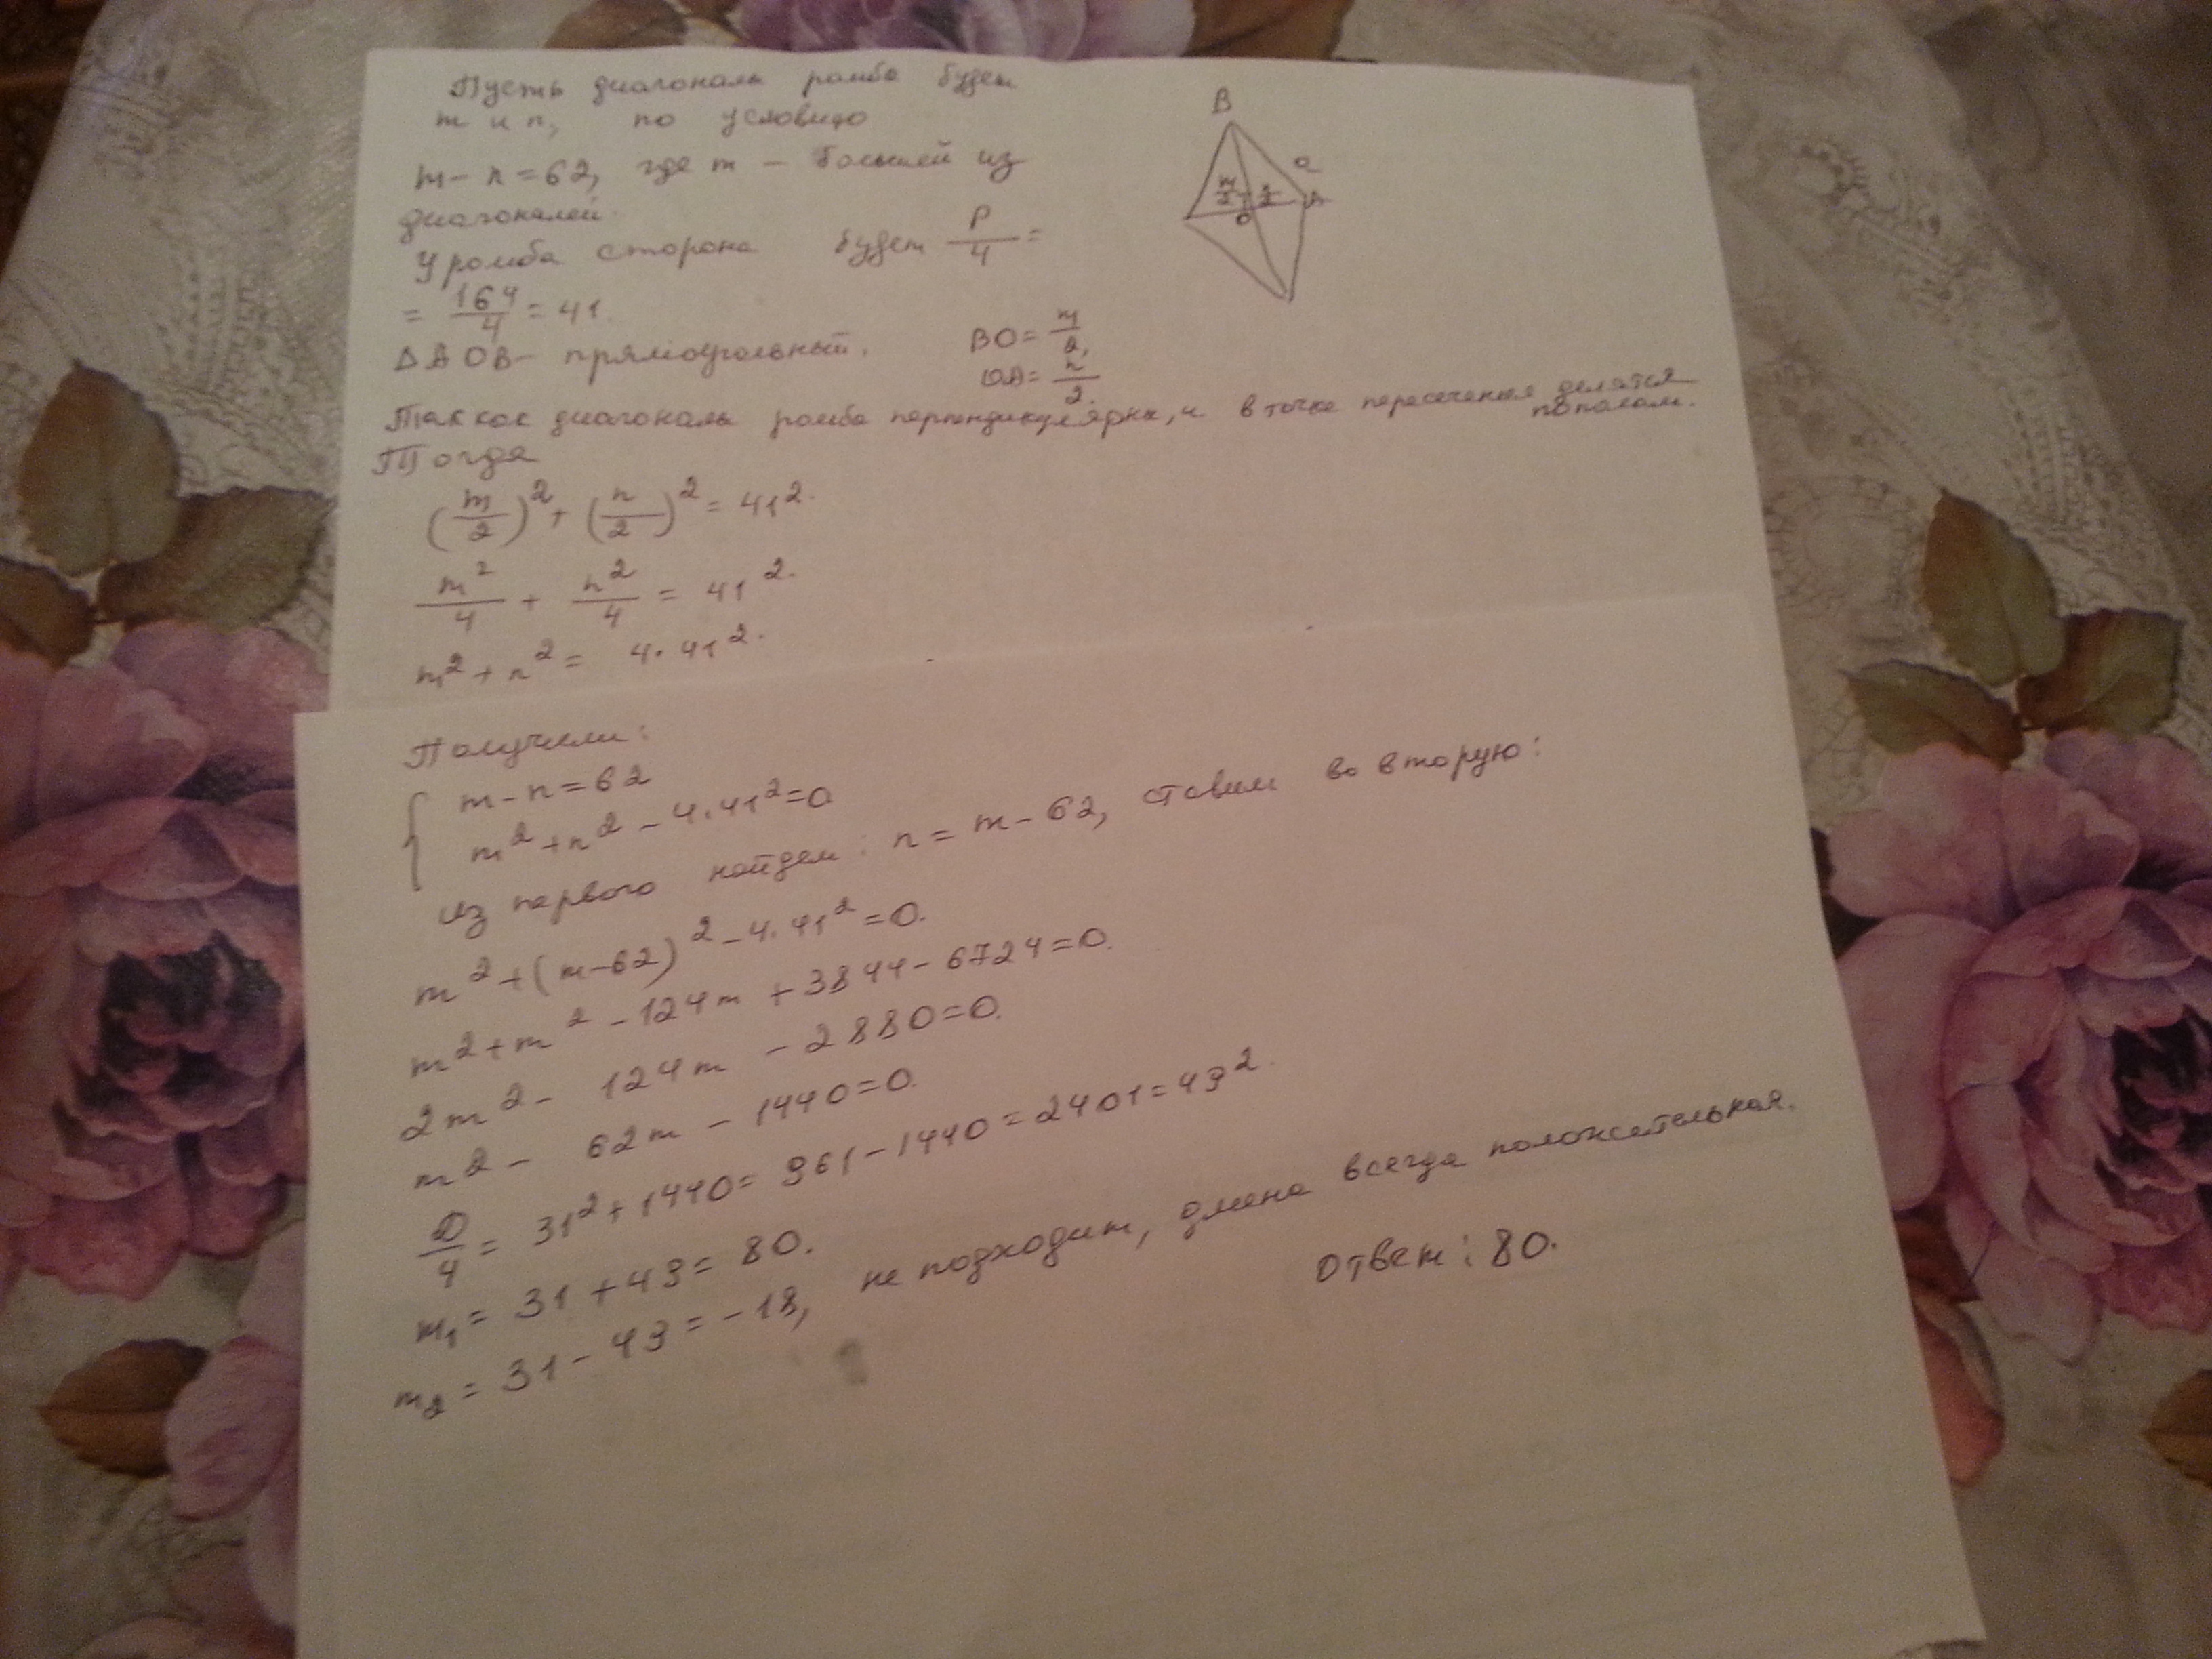 Пусть диагонали ромба будет
m и n, по условию
m - n = 62, где m - большей из
диагоналей.
У ромба сторона будет P/4 =
= 164/4 = 41.
B
a
m/2 n/2 A
O
ΔAOB - прямоугольный. BO = m/2,
OA = n/2.
Так как диагонали ромба перпендикулярны, и в точке пересечения делятся
пополам.
Тогда
(m/2)² + (n/2)² = 41².
m²/4 + n²/4 = 41².
m² + n² = 4·41².
Получили:
{ m - n = 62
m² + n² - 4·41² = 0
из первого найдем: n = m - 62, ставим во вторую:
m² + (m - 62)² - 4·41² = 0.
m² + m² - 124m + 3844 - 6724 = 0.
2m² - 124m - 2880 = 0.
m² - 62m - 1440 = 0.
D/4 = 31² + 1440 = 961 - 1440 = 2401 = 49².
m₁ = 31 + 49 = 80.
m₂ = 31 - 49 = -18, не подходит, длина всегда положительная.
Ответ: 80.